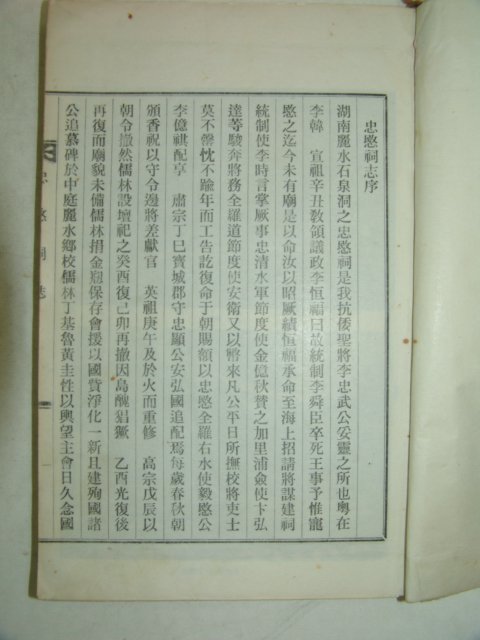 忠愍祠志序
湖南麗水石泉洞之忠愍祠是我抗倭聖將李忠武公妥靈之所也粤在
李韓 宣祖辛丑敎領議政李恒福曰故統制李舜臣卒死王事予惟寵
愍之迄今未有廟是以命汝以昭厥績恒福承命至海上招請將謀建祠
統制使李時言掌厥事忠清水軍節度使金億秋贊之加里浦僉使卞弘
達等駿奔將務全羅道節度使安衛又以幣來凡公平日所撫校將吏士
莫不罄忱不踰年而工告訖復命于朝賜額以忠愍全羅右水使毅愍公
李億祺配享 肅宗丁巳寶城郡守忠顯公安弘國追配焉每歲春秋朝
頒香祝以守令邊將差獻官 英祖庚午及於火而重修 高宗戊辰以
朝令撤然儒林設壇祀之癸酉復己卯再撤因島醜猖獗 乙酉光復後
再復而廟貌未備儒林捐金剏保存會援以國費淨化一新且建殉國諸
公追慕碑於中庭麗水鄉校儒林丁基魯黃圭性以輿望主會日久念國
忠愍祠誌